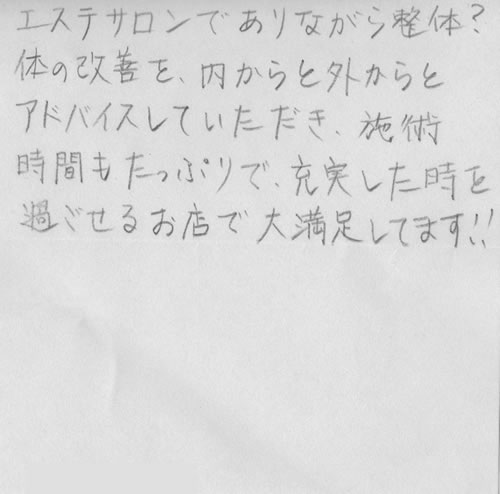 エステサロンでありながら整体?
体の改善を、内からと外からと
アドバイスしていただき、施術
時間もたっぷりで、充実した時を
過ごせるお店で大満足してます!!